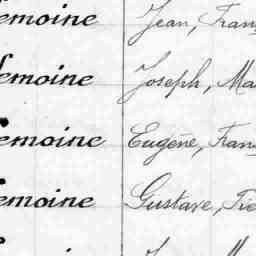 Lemoine Jean, Fran
Lemoine Joseph, Ma
Lemoine Eugène, Fran
Lemoine Gustave, Pie